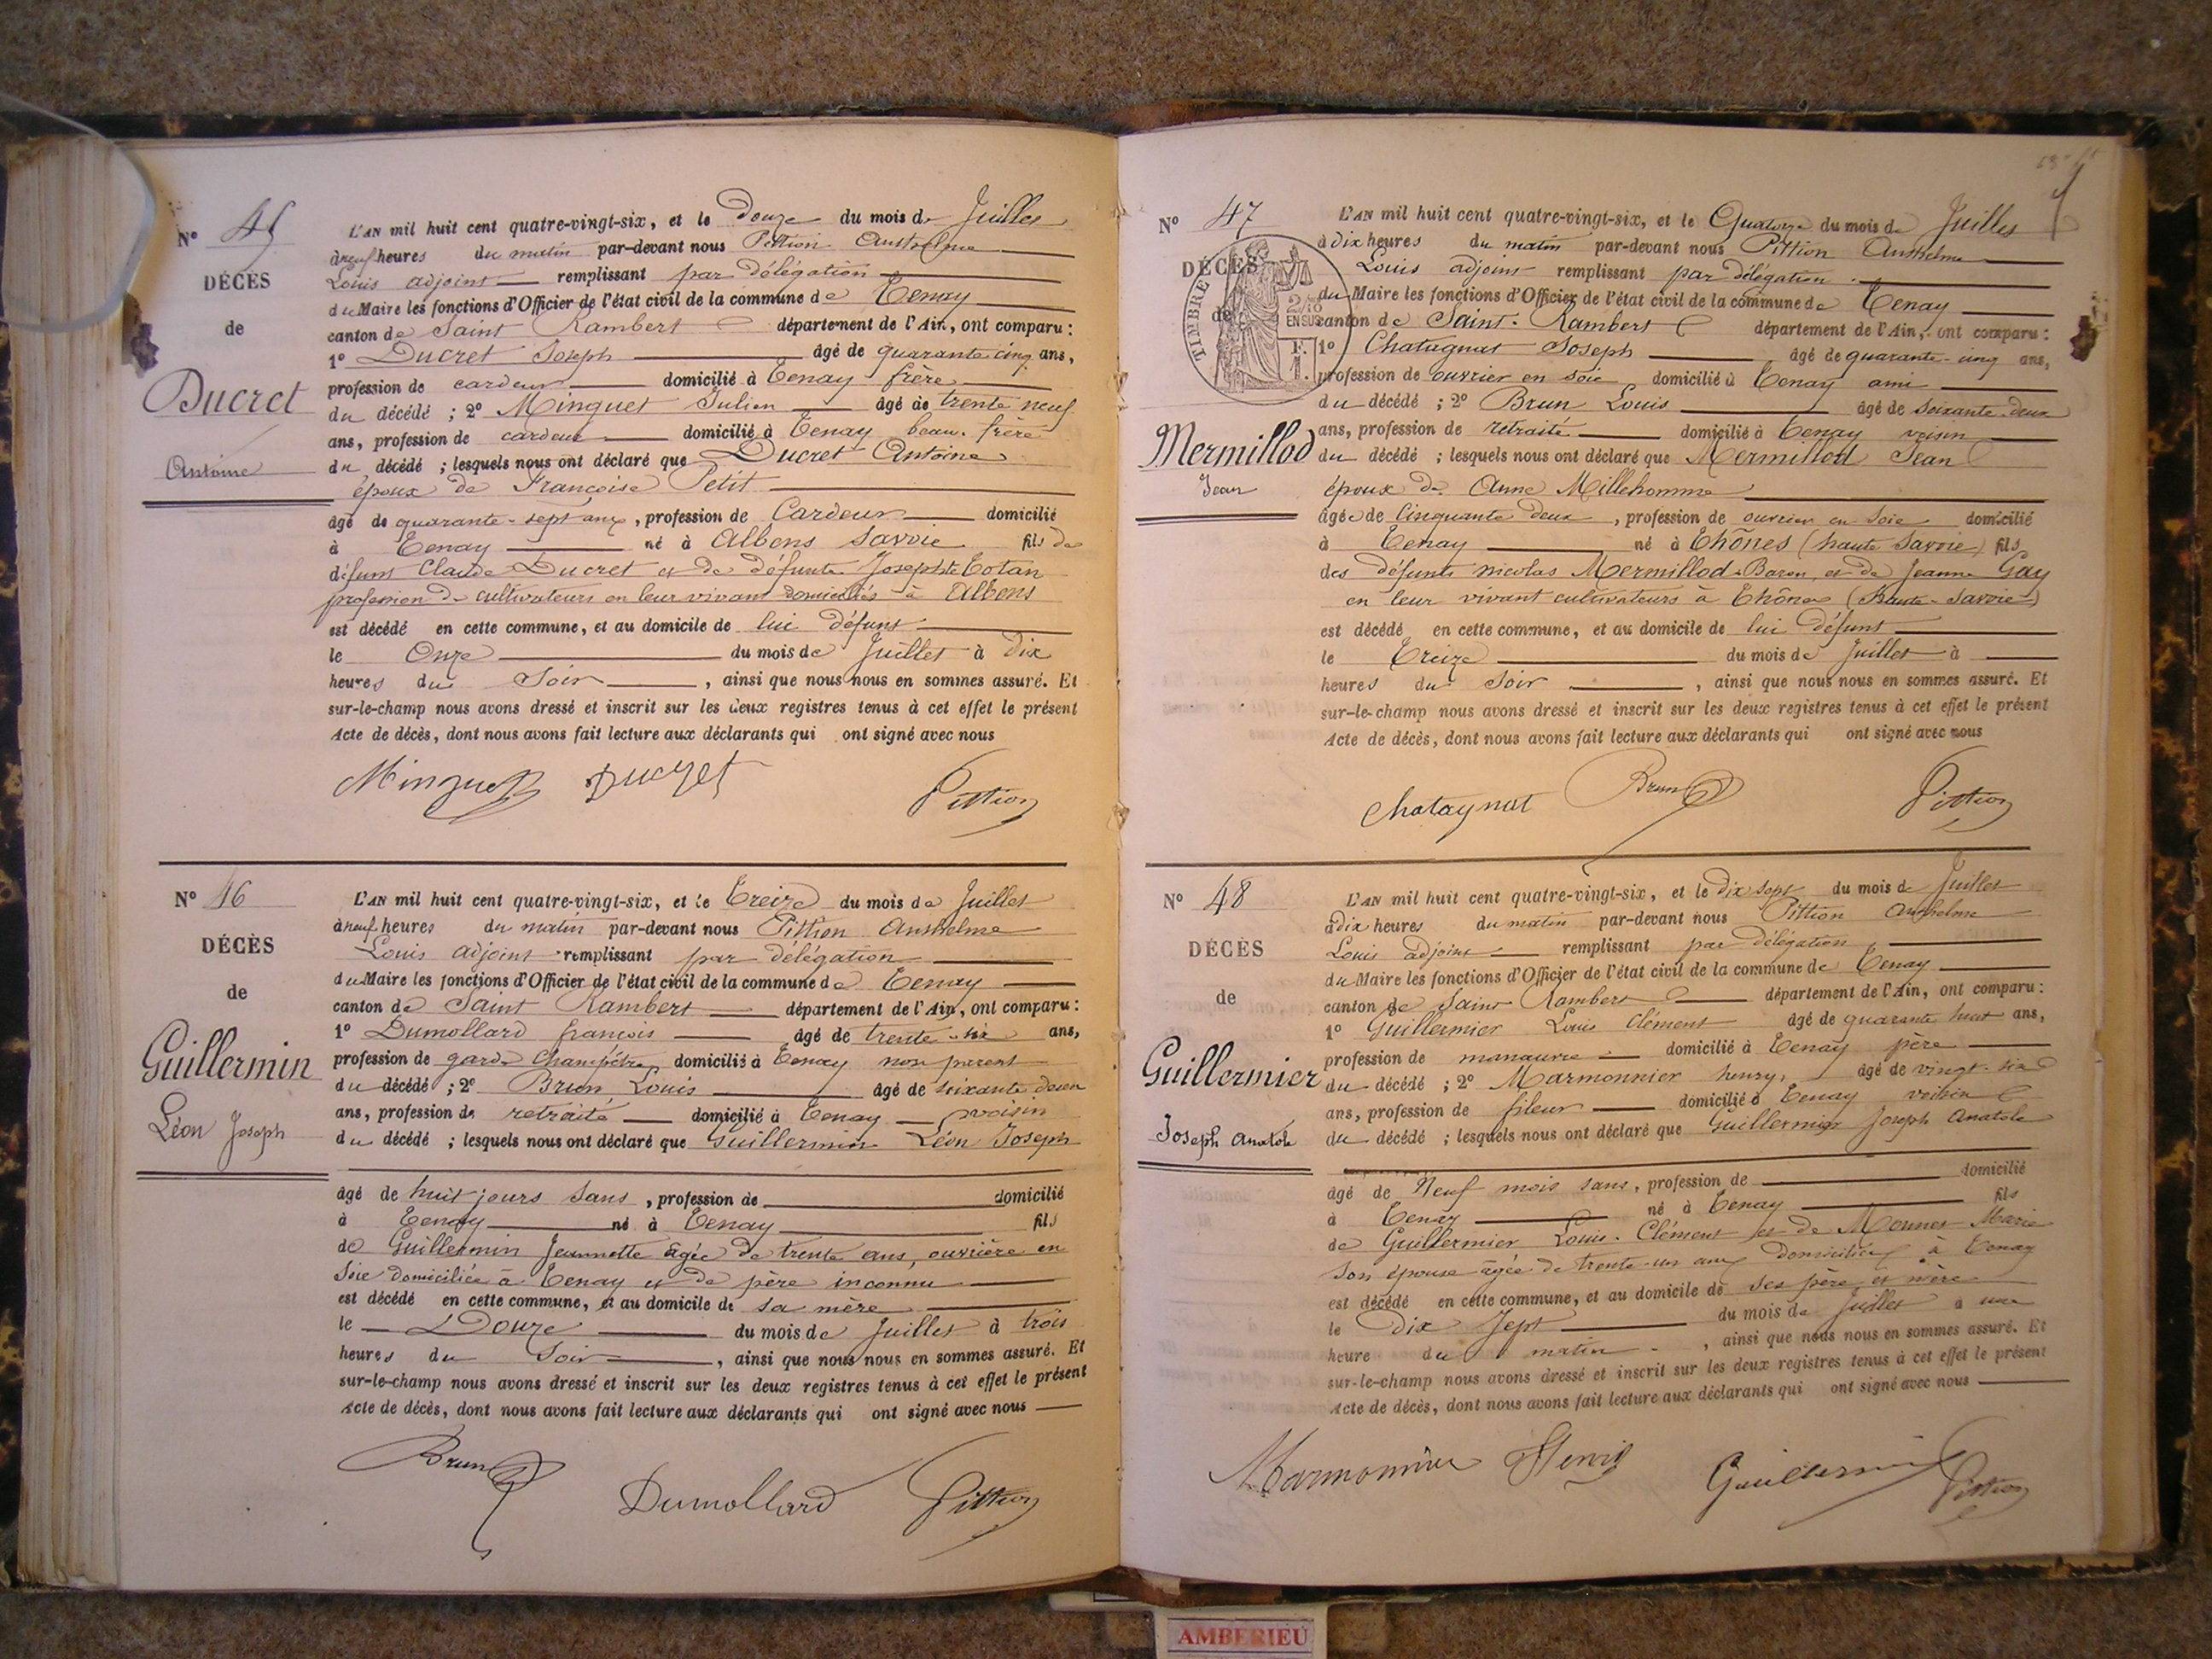 Nº 45
DÉCÈS
de
Ducret
Antoine
L'AN mil huit cent quatre-vingt-six, et le Douze du mois de Juillet
à neuf heures du matin par-devant nous Pittion Anthelme
Louis adjoint remplissant par délégation
du Maire les fonctions d'Officier de l'état civil de la commune de Tenay
canton de Saint Rambert département de l'Ain, ont comparu :
1º Ducret Joseph âgé de quarante cinq ans,
profession de cardeur domicilié à Tenay frère
du décédé ; 2º Minguet Julien âgé de trente neuf
ans, profession de cardeur domicilié à Tenay beau-frère
du décédé ; lesquels nous ont déclaré que Ducret Antoine
époux de Françoise Petit
âgé de quarante-sept ans, profession de Cardeur domicilié
à Tenay né à Albens Savoie fils de
défunt Claude Ducret et de défunte Josephte Cotan
profession de cultivateurs en leur vivant domiciliés à Albens
est décédé en cette commune, et au domicile de lui défunt
le Onze du mois de Juillet à Dix
heures du Soir, ainsi que nous nous en sommes assuré. Et
sur-le-champ nous avons dressé et inscrit sur les deux registres tenus à cet effet le présent
Acte de décès, dont nous avons fait lecture aux déclarants qui ont signé avec nous
Minguet Ducret Pittion
Nº 46
DÉCÈS
de
Guillermin
Léon Joseph
L'AN mil huit cent quatre-vingt-six, et le Treize du mois de Juillet
à neuf heures du matin par-devant nous Pittion Anthelme
Louis adjoint remplissant par délégation
du Maire les fonctions d'Officier de l'état civil de la commune de Tenay
canton de Saint Rambert département de l'Ain, ont comparu :
1º Dumollard françois âgé de trente-six ans,
profession de garde Champêtre domicilié à Tenay non parent
du décédé ; 2º Brun Louis âgé de soixante deux
ans, profession de retraité domicilié à Tenay voisin
du décédé ; lesquels nous ont déclaré que Guillermin Léon Joseph
âgé de huit jours sans, profession de domicilié
à Tenay né à Tenay fils
de Guillermin Jeannette âgée de trente ans, ouvrière en
Soie domiciliée à Tenay et de père inconnu
est décédé en cette commune, et au domicile de sa mère
le Douze du mois de Juillet à trois
heures du Soir, ainsi que nous nous en sommes assuré. Et
sur-le-champ nous avons dressé et inscrit sur les deux registres tenus à cet effet le présent
Acte de décès, dont nous avons fait lecture aux déclarants qui ont signé avec nous
Brun
Dumollard Pittion
Nº 47
DÉCÈS
de
TIMBRE
2/10
EN SUS
F.
1.
Mermillod
Jean
L'AN mil huit cent quatre-vingt-six, et le Quatorze du mois de Juillet
à dix heures du matin par-devant nous Pittion Anthelme
Louis adjoint remplissant par délégation
du Maire les fonctions d'Officier de l'état civil de la commune de Tenay
canton de Saint-Rambert département de l'Ain, ont comparu :
1º Chatagnat Joseph âgé de quarante-cinq ans,
profession de ouvrier en soie domicilié à Tenay ami
du décédé ; 2º Brun Louis âgé de soixante-deux
ans, profession de retraité domicilié à Tenay voisin
du décédé ; lesquels nous ont déclaré que Mermillod Jean
époux de Anne Millehomme
âgé de Cinquante deux, profession de ouvrier en Soie domicilié
à Tenay né à Thônes (haute Savoie) fils
des défunts nicolas Mermillod-Baron et de Jeanne Gay
en leur vivant cultivateurs à Thônes (Haute-Savoie)
est décédé en cette commune, et au domicile de lui Défunt
le Treize du mois de Juillet à
heures du Soir, ainsi que nous nous en sommes assuré. Et
sur-le-champ nous avons dressé et inscrit sur les deux registres tenus à cet effet le présent
Acte de décès, dont nous avons fait lecture aux déclarants qui ont signé avec nous
Chatagnat Brun Pittion
Nº 48
DÉCÈS
de
Guillermier
Joseph Anatole
L'AN mil huit cent quatre-vingt-six, et le Dix sept du mois de Juillet
à dix heures du matin par-devant nous Pittion Anthelme
Louis adjoint remplissant par délégation
du Maire les fonctions d'Officier de l'état civil de la commune de Tenay
canton de Saint Rambert département de l'Ain, ont comparu :
1º Guillermier Louis Clément âgé de quarante huit ans,
profession de manœuvre domicilié à Tenay père
du décédé ; 2º Marmonnier henry, âgé de vingt-six
ans, profession de fileur domicilié à Tenay voisin
du décédé ; lesquels nous ont déclaré que Guillermier Joseph Anatole
âgé de Neuf mois sans, profession de domicilié
à Tenay né à Tenay fils
de Guillermier Louis-Clément et de Mounet Marie
son épouse âgée de trente-un ans domiciliés à Tenay
est décédé en cette commune, et au domicile de ses père et mère
le Dix Sept du mois de Juillet à une
heure du matin, ainsi que nous nous en sommes assuré. Et
sur-le-champ nous avons dressé et inscrit sur les deux registres tenus à cet effet le présent
Acte de décès, dont nous avons fait lecture aux déclarants qui ont signé avec nous
Marmonnier Henry Guillermier Pittion
AMBERIEU